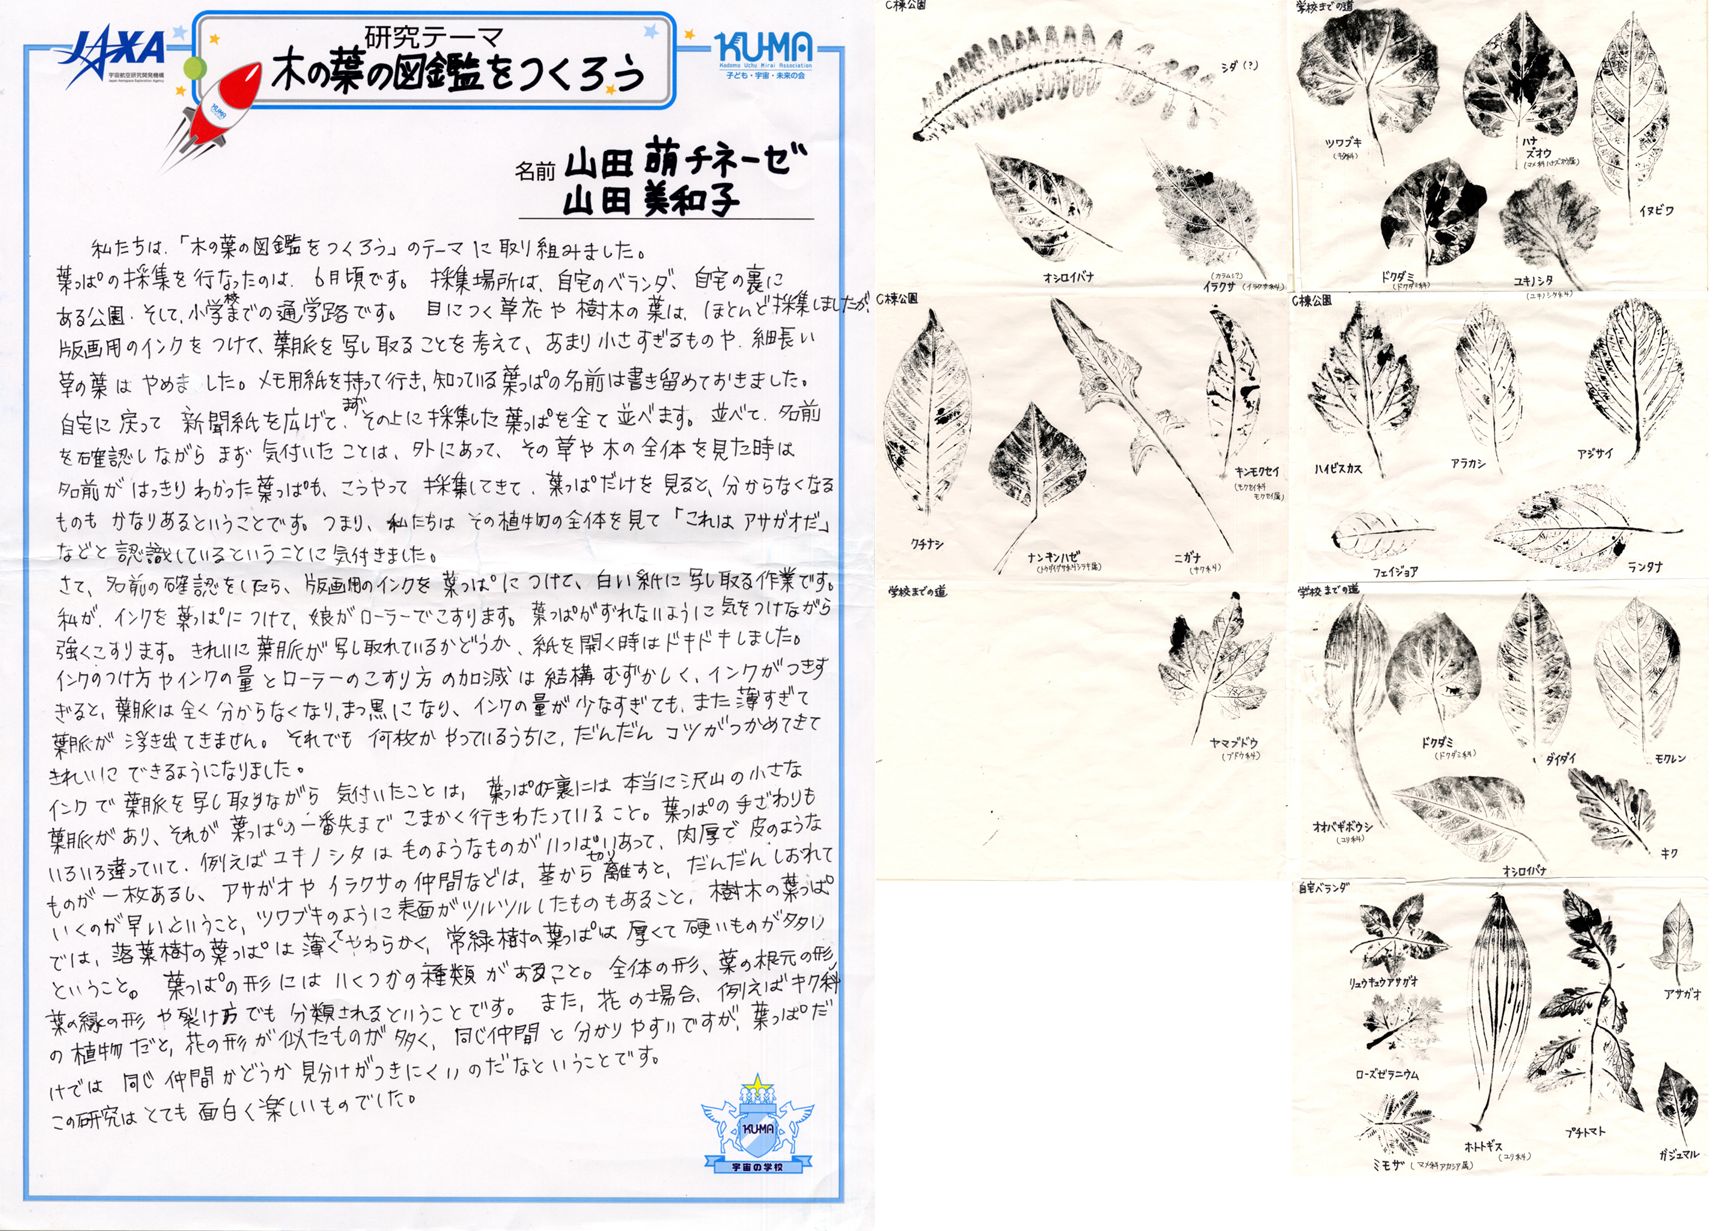 JAXA
宇宙航空研究開発機構
Japan Aerospace Exploration Agency
研究テーマ
木の葉の図鑑をつくろう
KU-MA
Kodomo Uchu Mirai Association
子ども・宇宙・未来の会
KU-MA
名前 山田 萌チネーゼ
山田 美和子
私たちは、「木の葉の図鑑をつくろう」のテーマに取り組みました。
葉っぱの採集を行なったのは、6月頃です。採集場所は、自宅のベランダ、自宅の裏に
ある公園、そして、小学校までの通学路です。目につく草花や樹木の葉は、ほとんど採集しましたが、
版画用のインクをつけて、葉脈を写し取ることを考えて、あまり小さすぎるものや、細長い
草の葉はやめました。メモ用紙を持って行き、知っている葉っぱの名前は書き留めておきました。
自宅に戻って新聞紙を広げて、まずその上に採集した葉っぱを全て並べます。並べて、名前
を確認しながらまず気付いたことは、外にあって、その草や木の全体を見た時は
名前がはっきりわかった葉っぱも、こうやって採集してきて、葉っぱだけを見ると、分からなくなる
ものもかなりあるということです。つまり、私たちはその植物の全体を見て「これはアサガオだ」
などと認識しているということに気付きました。
さて、名前の確認をしたら、版画用のインクを葉っぱにつけて、白い紙に写し取る作業です。
私が、インクを葉っぱにつけて、娘がローラーでこすります。葉っぱがずれないように気をつけながら
強くこすります。きれいに葉脈が写し取れているかどうか、紙を開く時はドキドキしました。
インクのつけ方やインクの量とローラーのこすり方の加減は結構むずかしく、インクがつきす
ぎると、葉脈は全く分からなくなり、まっ黒になり、インクの量が少なすぎても、また薄すぎて
葉脈が浮き出てきません。それでも何枚かやっているうちに、だんだんコツがつかめてきて
きれいにできるようになりました。
インクで葉脈を写し取りながら気付いたことは、葉っぱの裏には本当に沢山の小さな
葉脈があり、それが葉っぱの一番先までこまかく行きわたっていること。葉っぱの手ざわりも
いろいろ違っていて、例えばユキノシタは毛のようなものがいっぱいあって、肉厚で皮のような
ものが一枚あるし、アサガオやイラクサの仲間などは、茎から切り離すと、だんだんしおれて
いくのが早いということ、ツワブキのように表面がツルツルしたものもあること、樹木の葉っぱ
では、落葉樹の葉っぱは薄くてやわらかく、常緑樹の葉っぱは厚くて硬いものが多い
ということ。葉っぱの形にはいくつかの種類があること。全体の形、葉の根元の形、
葉の縁の形や裂け方でも分類されるということです。また、花の場合、例えばキク科
の植物だと、花の形が似たものが多く、同じ仲間と分かりやすいですが、葉っぱだ
けでは同じ仲間かどうか見分けがつきにくいのだなということです。
この研究はとても面白く楽しいものでした。
KU-MA
宇宙の学校
C棟公園
シダ(?)
オシロイバナ
イラクサ(イラクサ科)
学校までの道
ツワブキ
(キク科)
ハナ
ズオウ
(マメ科ハナズオウ属)
イヌビワ
ドクダミ
(ドクダミ科)
ユキノシタ
(ユキノシタ科)
C棟公園
クチナシ
ナンキンハゼ
(トウダイグサ科シラキ属)
ニガナ
(キク科)
キンモクセイ
(モクセイ科
モクセイ属)
C棟公園
ハイビスカス
アラカシ
アジサイ
フェイジョア
ランタナ
学校までの道
ヤマブドウ
(ブドウ科)
学校までの道
オオバギボウシ
(ユリ科)
ドクダミ
(ドクダミ科)
ダイダイ
モクレン
オシロイバナ
キク
自宅ベランダ
リュウキュウアサガオ
ローズゼラニウム
ミモザ(マメ科アカシア属)
ホトトギス
(ユリ科)
プチトマト
アサガオ
ガジュマル